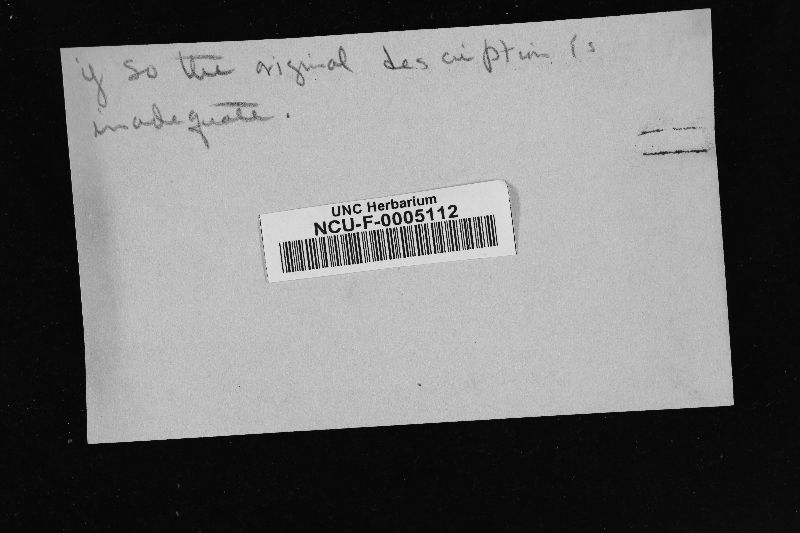 if so the original description is
inadequate.
UNC Herbarium
NCU-F-0005112